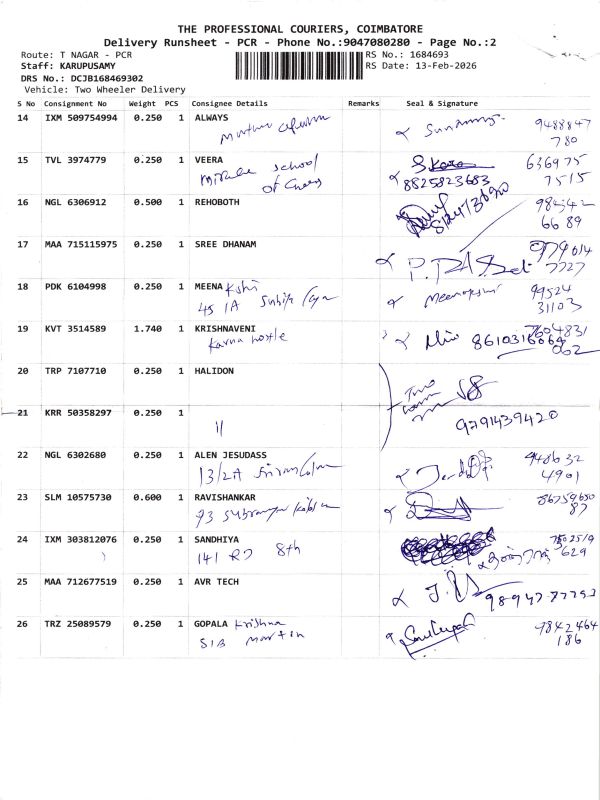 THE PROFESSIONAL COURIERS, COIMBATORE
Delivery Runsheet - PCR - Phone No.:9047080280 - Page No.:2
Route: T NAGAR - PCR RS No.: 1684693
Staff: KARUPUSAMY RS Date: 13-Feb-2026
DRS No.: DCJB168469302
Vehicle: Two Wheeler Delivery
S No Consignment No Weight PCS Consignee Details Remarks Seal & Signature
14 IXM 509754994 0.250 1 ALWAYS 9488847
780
15 TVL 3974779 0.250 1 VEERA 636975
school 8825823683 7515
16 NGL 6306912 0.500 1 REHOBOTH
6689
17 MAA 715115975 0.250 1 SREE DHANAM
7727
18 PDK 6104998 0.250 1 MEENA 99524
45 1A 31103
19 KVT 3514589 1.740 1 KRISHNAVENI
Karna hostle 002
20 TRP 7107710 0.250 1 HALIDON
21 KRR 50358297 0.250 1
11 9791439420
22 NGL 6302680 0.250 1 ALEN JESUDASS 948632
13/2A 4901
23 SLM 10575730 0.600 1 RAVISHANKAR
93 87
24 IXM 303812076 0.250 1 SANDHIYA
141 RD 8th 629
25 MAA 712677519 0.250 1 AVR TECH
26 TRZ 25089579 0.250 1 GOPALA Krishna 9842464
SIB Martin 186